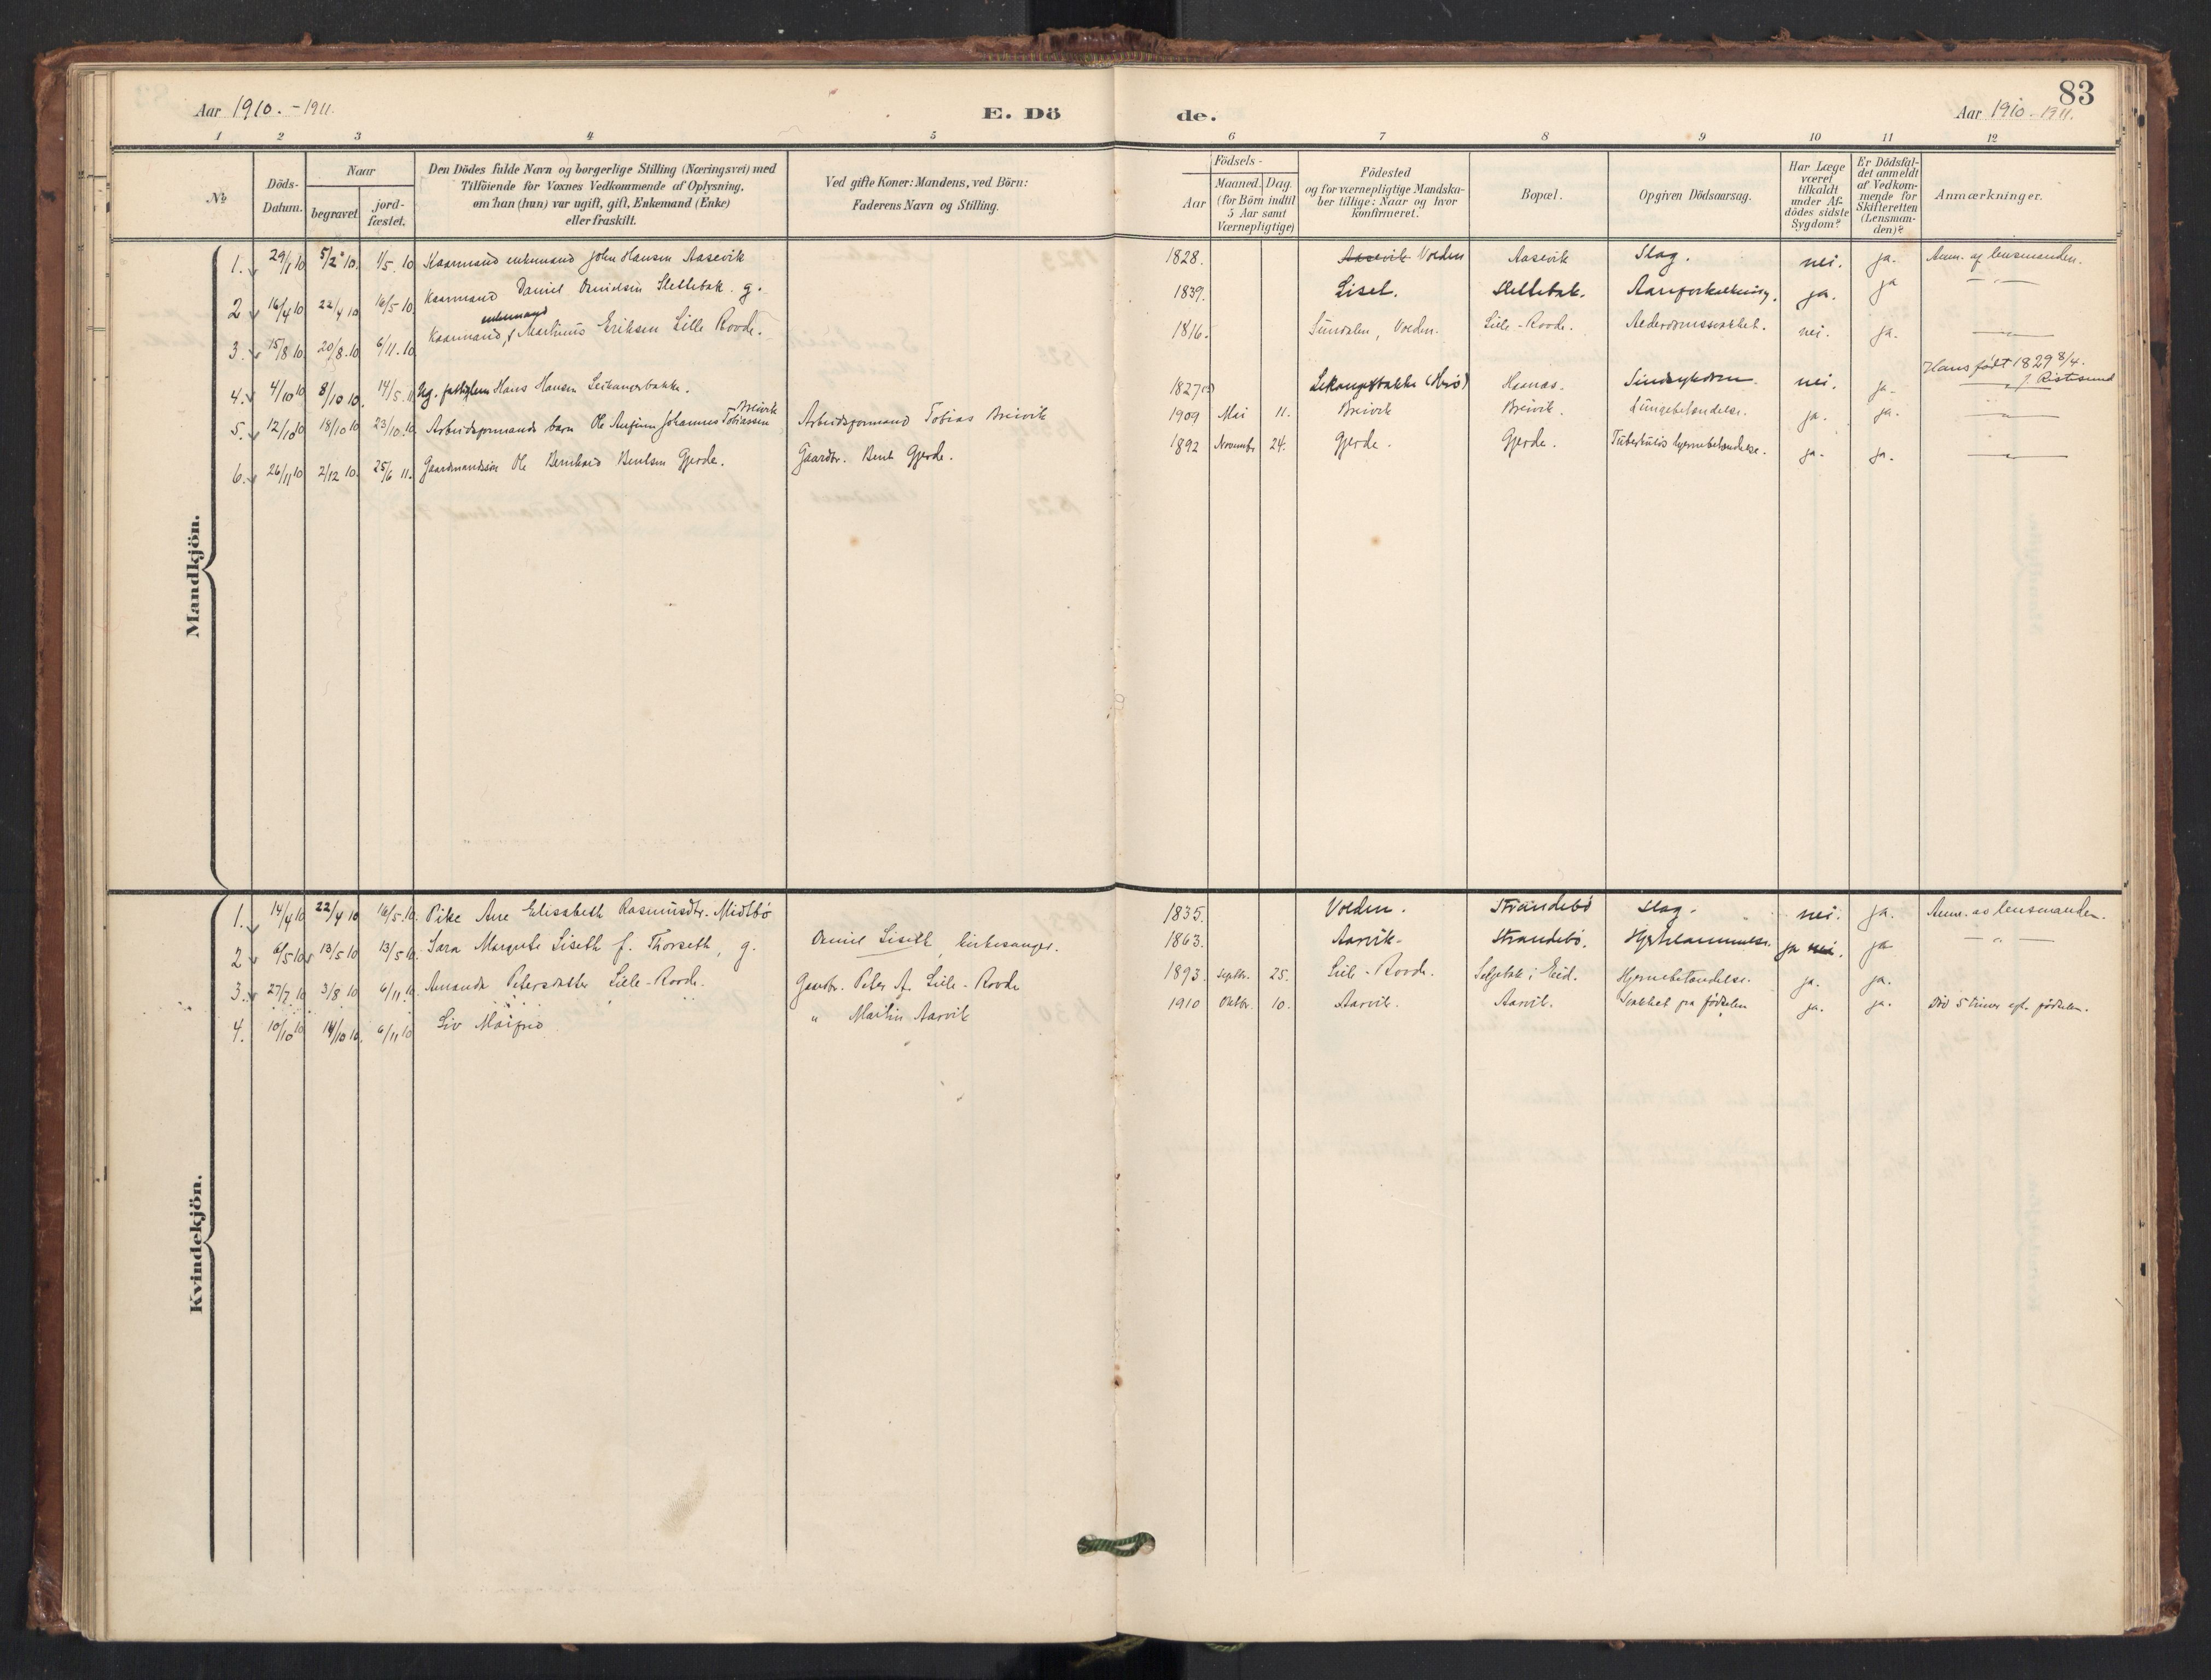 83
Aar 1910. - 1911.
E. Dö
de.
Aar 1910 - 1911.
1 2 3 4 5 6 7 8 9 10 11 12
No
Döds-Datum.
Naar
begravet.
jord-fæstet.
Den Dödes fulde Navn og borgerlige Stilling (Næringsvei) med
Tilföiende for Voxnes Vedkommende af Oplysning,
om han (hun) var ugift, gift, Enkemand (Enke)
eller fraskilt.
Ved gifte Koner: Mandens, ved Börn:
Faderens Navn og Stilling.
Födsels-
Aar
Maaned.
Dag.
(for Börn indtil
5 Aar samt
Værnepligtige)
Födested
og for værnepligtige Mandska-
ber tillige: Naar og hvor
konfirmeret.
Bopæl.
Opgiven Dödsaarsag.
Har Læge
været
tilkaldt
under Af-
dödes sidste
Sygdom?
Er Dödsfal-
det anmeldt
af Vedkom-
mende for
Skifteretten
(Lensman-
den)?
Anmærkninger.
Mandkjön.
1. 29/1 10 5/2 10. 1/5 10 Kaarmand enkemand John Hansen Aasevik 1828. Aasevik Volden Aasevik Slag. nei. ja. Anm. af lensmanden.
2 16/4 10 22/4 10 16/5 10 Kaarmand Daniel Slettebak g. 1839. Liset. Slettebak. Aareforkalkning. ja. ja — " —
enkemand
3. 15/8 10 20/8 10 6/11 10 Kaarmand, Martinus Eriksen Lille Rovde. 1816. Sundalen, Volden. Lille-Rovde. Alderdomssvakhet. nei. ja. — " —
Hans født 1829 8/4.
4. 4/10 10 8/10 10. 14/5 11 Ug. fattiglem Hans Hansen Leikangerbakke. 1827 Leikangerbakke (Herö) Haanæs. Sindsykdom. nei. ja. J. Ristesund
Breivik
5. 12/10 10 18/10 10 23/10 10 Arbeidsformands barn Ole Johannes Tobiassen Arbeidsformand Tobias Breivik 1909 Mai 11. Breivik Breivik. Lungebetændelse. ja. ja. — " —
6. 26/11 10 2/12 10. 25/6 11. Gaardmandssön Ole Bernhard Bentsen Gjerde. Gaardbr. Bent Gjerde. 1892 Novembr 24. Gjerde. Gjerde. Tuberkulös hjernebetændelse. ja. ja. — " —
Kvindekjön.
1. 14/4 10 22/4 10 16/5 10. Pike Ane Elisabeth Rasmusdtr. Midtbö 1835. Volden. Strandebö Slag. nei. ja. Anm. av lensmanden.
2 6/5 10 13/5 10 13/5 10. Sara Margrete Liseth f. Thorseth, g. Daniel Liseth, kirkesanger. 1863. Aarvik. Strandebö. Hjertelammelse. ja nei. ja — " —
3. 27/7 10 3/8 10 6/11 10 Amanda Petersdatter Lille-Rovde. Gaardbr. Peter A. Lille-Rovde 1893. Septbr. 25. Lille-Rovde. i Eid. Hjernebetændelse. ja. ja.
4. 10/10 10 14/10 10. 6/11 10 Liv Möifrid " Martin Aarvik 1910 Oktbr. 10. Aarvik. Aarvik. Svakhet fra födselen ja. ja. Död 5 timer eft. födselen.